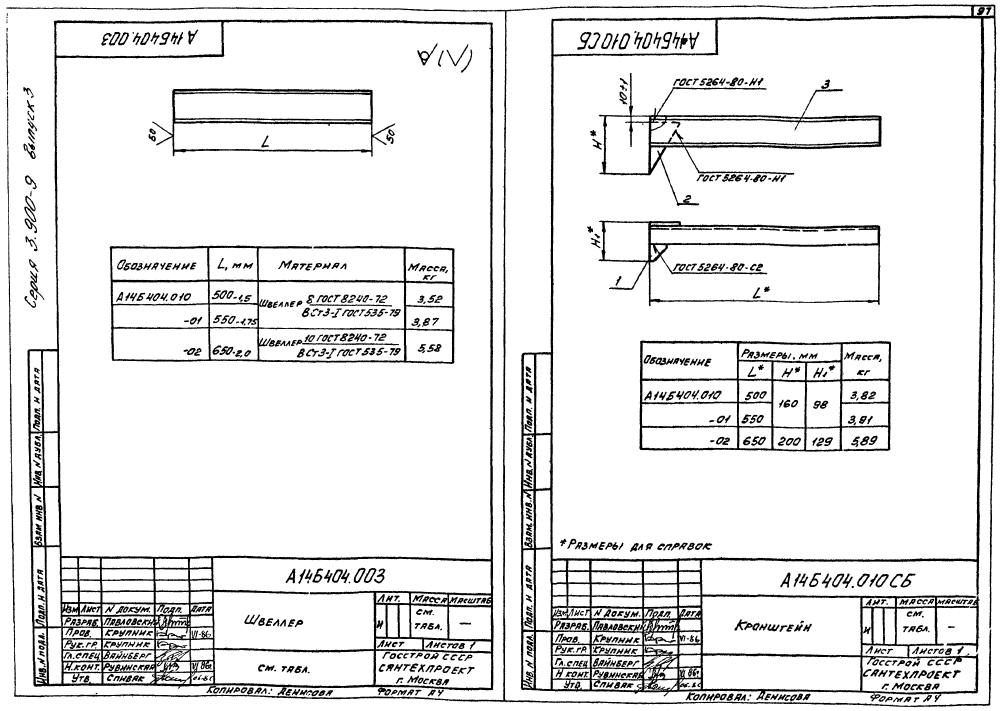 97
Серия 3.900-9 Выпуск 3
А14Б404.003
(√)
50
50
L
Обозначение L, мм Материал Масса, кг
А14Б404.010 500-1,5 Швеллер 8 ГОСТ 8240-72 / ВСт3-I ГОСТ 535-79 3,52
-01 550-1,75 3,87
-02 650-2,0 Швеллер 10 ГОСТ 8240-72 / ВСт3-I ГОСТ 535-79 5,58
Инв. N подл. Подп. и дата Взам. инв. N Инв. N дубл. Подп. и дата
А14Б404.003
Изм Лист N докум. Подп. Дата
Разраб. Павловский
Пров. Крупник VI-86
Рук.гр. Крупник
Гл.спец Вайнберг
Н.конт. Рувинская VI 86г
Утв. Спивак
Швеллер
см. табл.
Лит. Масса Масштаб
И см. табл. —
Лист Листов 1
Госстрой СССР
Сантехпроект
г. Москва
Копировал: Денисова Формат А4
А14Б404.010СБ
10±1
ГОСТ 5264-80-Н1
3
H*
ГОСТ 5264-80-Н1
2
H1*
1
ГОСТ 5264-80-С2
L*
Обозначение Размеры, мм Масса, кг
L* H* H1*
А14Б404.010 500 160 98 3,82
-01 550 3,91
-02 650 200 129 5,89
* Размеры для справок
Инв. N подл. Подп. и дата Взам. инв. N Инв. N дубл. Подп. и дата
А14Б404.010СБ
Изм Лист N докум. Подп. Дата
Разраб. Павловский
Пров. Крупник VI-86
Рук.гр. Крупник
Гл.спец Вайнберг
Н конт. Рувинская VI 86г
Утв. Спивак
Кронштейн
Лит. Масса Масштаб
И см. табл. —
Лист Листов 1
Госстрой СССР
Сантехпроект
г. Москва
Копировал: Денисова Формат А4